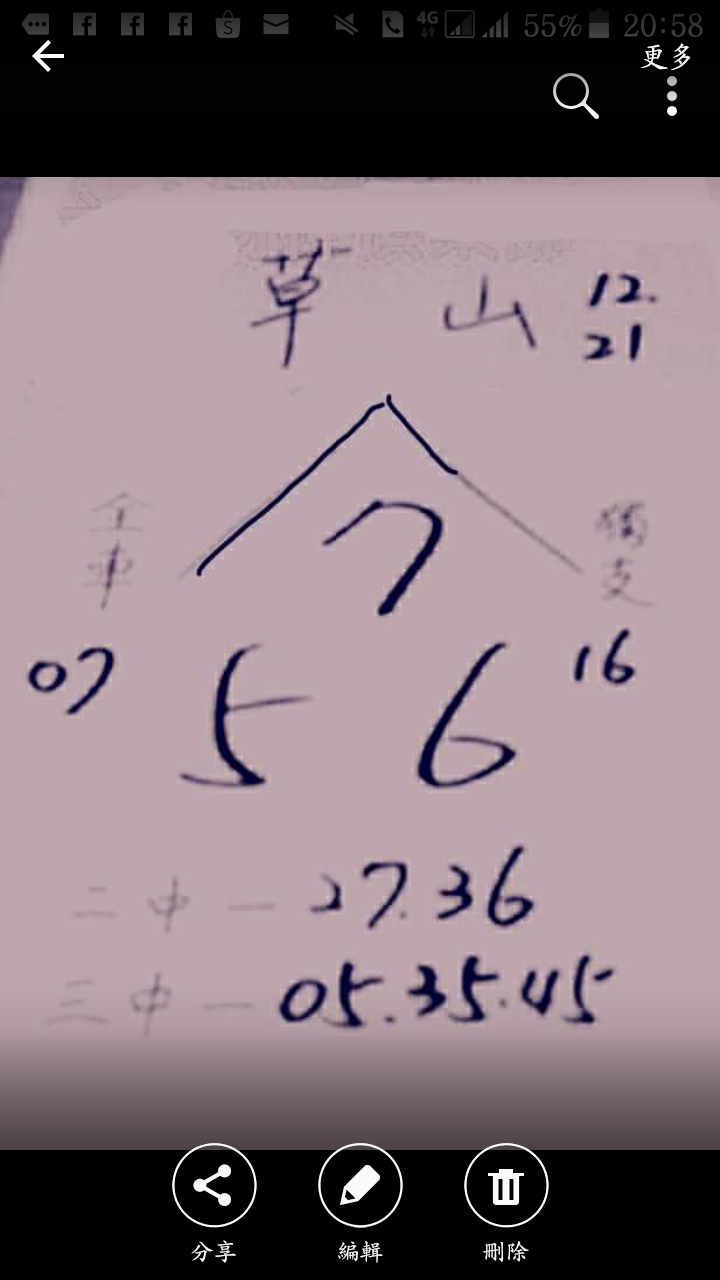 4G 55% 20:58
更多
草 山 12.
21
全車 獨支
7
07 5 6 16
二中一27.36
三中一05.35.45
分享 編輯 刪除